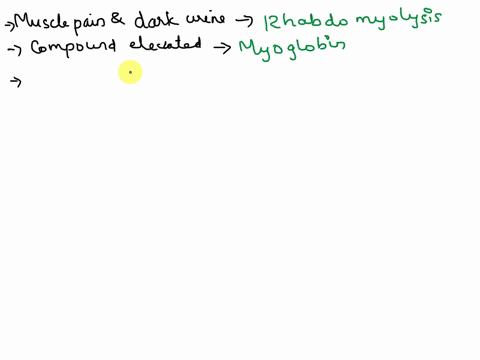 → Muscle pain & dark urine → Rhabdo myolysis
→ Compound elevated → Myoglobin
→